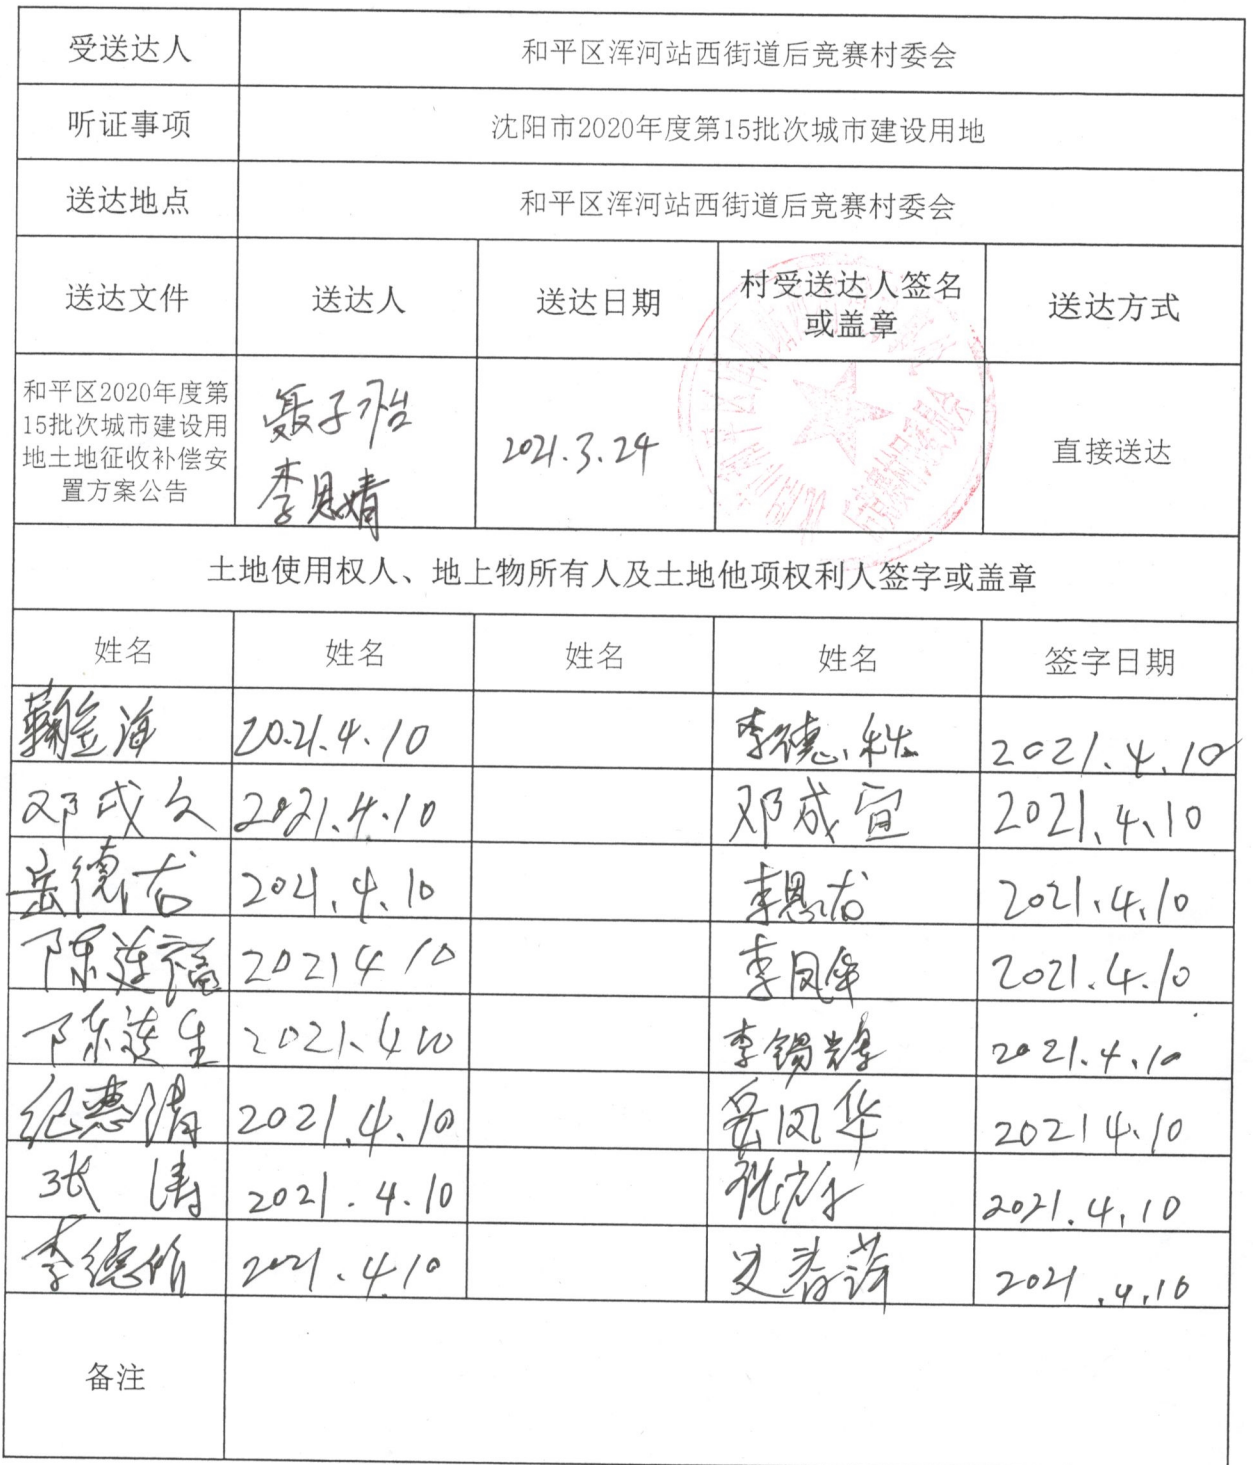 受送达人 和平区浑河站西街道后竞赛村委会
听证事项 沈阳市2020年度第15批次城市建设用地
送达地点 和平区浑河站西街道后竞赛村委会
送达文件 送达人 送达日期 村受送达人签名 送达方式
或盖章
和平区2020年度第
15批次城市建设用
地土地征收补偿安
置方案公告
聂子怡
李思婧
2021.3.24
直接送达
土地使用权人、地上物所有人及土地他项权利人签字或盖章
姓名 姓名 姓名 姓名 签字日期
鞠金海 2021.4.10 李德 2021.4.10
邓成久 2021.4.10 邓成宣 2021.4.10
岳德 2021.4.10 李恩 2021.4.10
陈莲福 2021 4 10 李凤 2021.4.10
陈莲生 2021.4 10 李锡辉 2021.4.10
纪惠清 2021.4.10 岳凤华 2021 4.10
张涛 2021.4.10 张 2021.4.10
李德 2021.4.10 史春萍 2021.4.10
备注